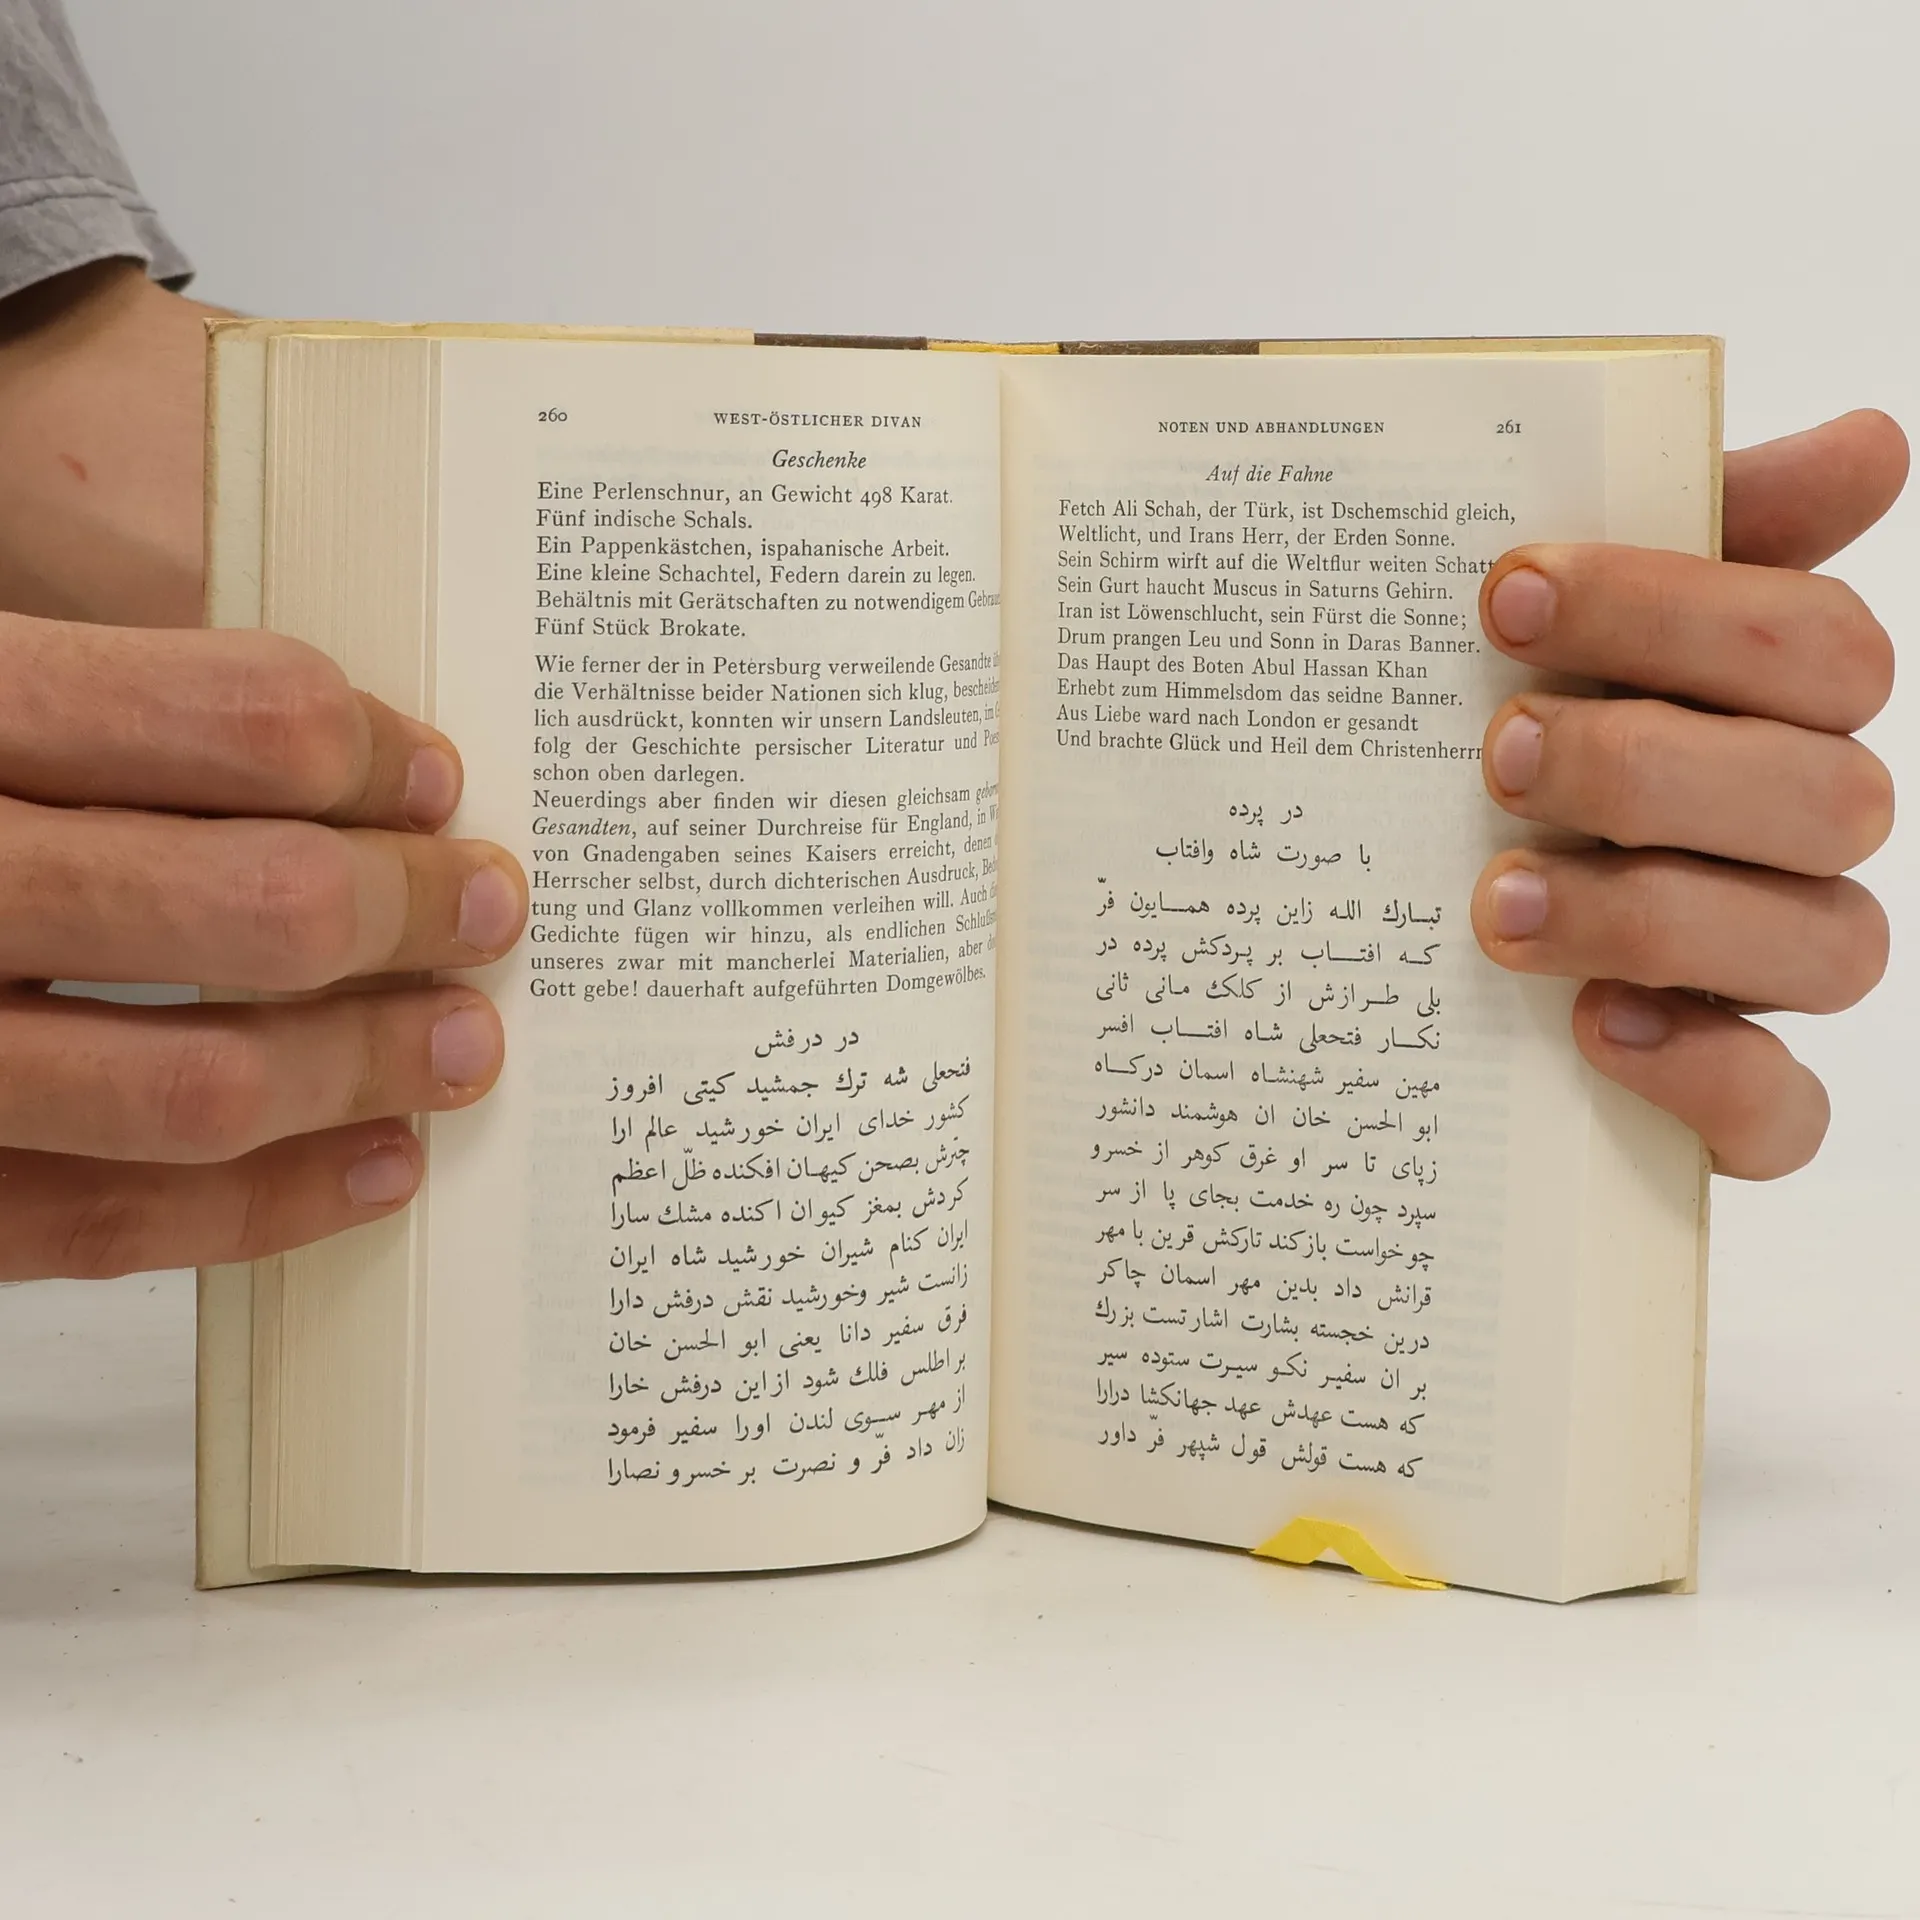 260
WEST-ÖSTLICHER DIVAN
Geschenke
Eine Perlenschnur, an Gewicht 498 Karat.
Fünf indische Schals.
Ein Pappenkästchen, ispahanische Arbeit.
Eine kleine Schachtel, Federn darein zu legen.
Behältnis mit Gerätschaften zu notwendigem
Fünf Stück Brokate.
Wie ferner der in Petersburg verweilende Gesandte
die Verhältnisse beider Nationen sich klug,
lich ausdrückt, konnten wir unsern Landsleuten, im
folg der Geschichte persischer Literatur und
schon oben darlegen.
Neuerdings aber finden wir diesen gleichsam
Gesandten, auf seiner Durchreise für England, in
von Gnadengaben seines Kaisers erreicht, denen
Herrscher selbst, durch dichterischen Ausdruck,
tung und Glanz vollkommen verleihen will. Auch
Gedichte fügen wir hinzu, als endlichen
unseres zwar mit mancherlei Materialien, aber
Gott gebe! dauerhaft aufgeführten Domgewölbes.
در درفش
فتحعلی شه ترك جمشید کیتی افروز
کشور خدای ایران خورشید عالم ارا
چترش بصحن کیهان افکنده ظلّ اعظم
کردش بمغز کیوان اکنده مشك سارا
ایران کنام شیران خورشید شاه ایران
زانست شیر وخورشید نقش درفش دارا
فرق سفیر دانا یعنی ابو الحسن خان
بر اطلس فلك شود از این درفش خارا
از مهر سوی لندن اورا سفیر فرمود
زان داد فرّ و نصرت بر خسرو نصارا
NOTEN UND ABHANDLUNGEN
261
Auf die Fahne
Fetch Ali Schah, der Türk, ist Dschemschid gleich,
Weltlicht, und Irans Herr, der Erden Sonne.
Sein Schirm wirft auf die Weltflur weiten
Sein Gurt haucht Muscus in Saturns Gehirn.
Iran ist Löwenschlucht, sein Fürst die Sonne;
Drum prangen Leu und Sonn in Daras Banner.
Das Haupt des Boten Abul Hassan Khan
Erhebt zum Himmelsdom das seidne Banner.
Aus Liebe ward nach London er gesandt
Und brachte Glück und Heil dem
در پرده
با صورت شاه وافتاب
تبارك الله زاین پرده همایون فرّ
که افتاب بر پردکش پرده در
بلی طرازش از کلك مانی ثانی
نکار فتحعلی شاه افتاب افسر
مهین سفیر شهنشاه اسمان درکاه
ابو الحسن خان ان هوشمند دانشور
زپای تا سر او غرق کوهر از خسرو
سپرد چون ره خدمت بجای پا از سر
چو خواست بازکند تارکش قرین با مهر
قرانش داد بدین مهر اسمان چاکر
درین خجسته بشارت اشارتست بزرك
بر ان سفیر نکو سیرت ستوده سیر
که هست عهدش عهد جهانکشا درارا
که هست قولش قول شپهر فرّ داور